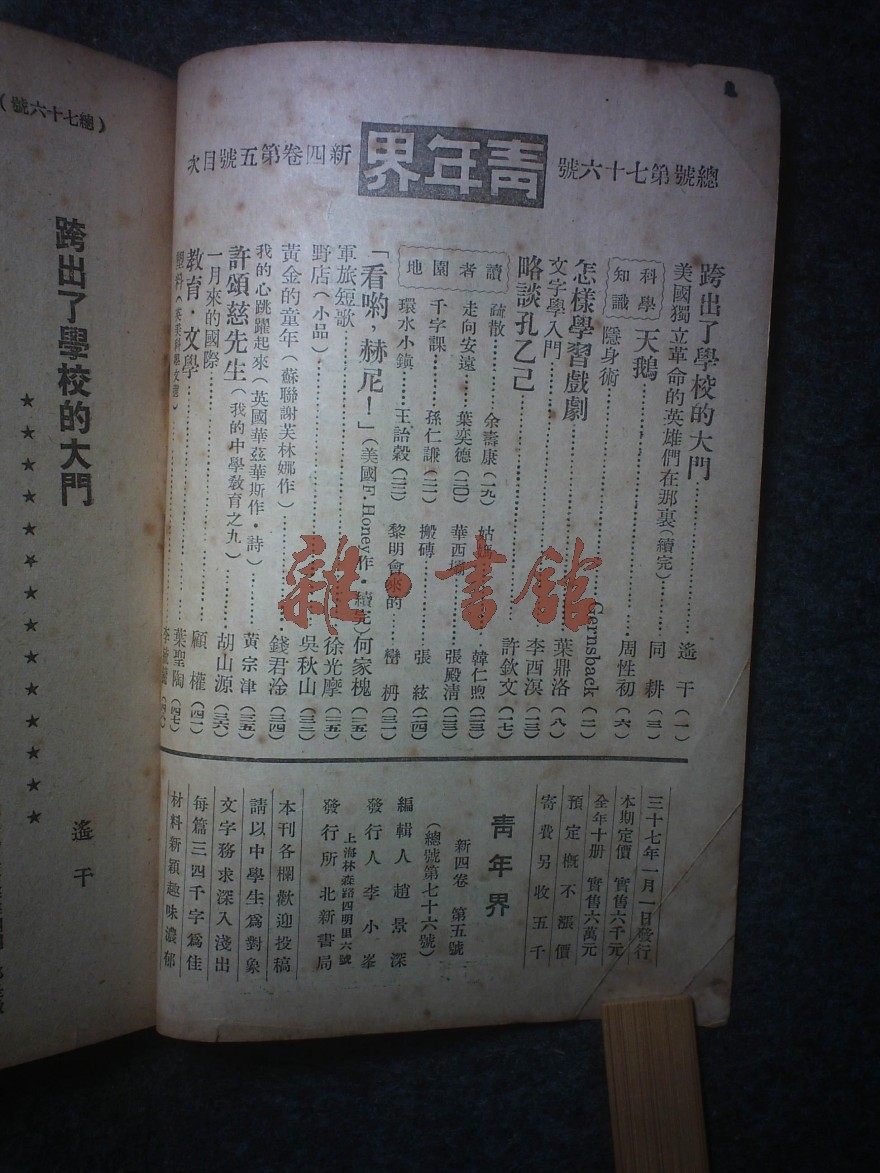 總號第七十六號
青年界
新四卷第五號目次
跨出了學校的大門……遙干(一)
美國獨立革命的英雄們在那裏(續完)……同耕(三)
科學知識
天鵝……周性初(六)
隱身術……Gernsback(二)
怎樣學習戲劇……葉鼎洛(八)
文字學入門……李西溟(一三)
略談孔乙己……許欽文(一七)
讀者園地
疏散……余壽康(一九)
韓仁煦(二三)
走向安遠……葉奕德(二〇)
華西……張殿清(二三)
千字課……孫仁謙(二一)
搬磚……張絃(二四)
環水小鎭……王詒穀(二二)
黎明會來的……巒枬(三一)
「看喲，赫尼！」(美國F. Honey作・續完)何家槐(二五)
軍旅短歌……徐光摩(二五)
野店(小品)……吳秋山(三三)
黃金的童年(蘇聯謝芙林娜作)……錢君淦(三四)
我的心跳躍起來(英國華茲華斯作・詩)……黃宗津(三五)
許頌慈先生(我的中學敎育之九)……胡山源(三六)
一月來的國際……顧權(四一)
敎育・文學……葉聖陶(四七)
塑料
三十七年一月一日發行
本期定價 實售六千元
全年十册 實售六萬元
預定槪不漲價
寄費另收五千
青年界
新四卷 第五號
(總號第七十六號)
編輯人 趙景深
發行人 李小峯
上海林森路四明里六號
發行所 北新書局
本刊各欄歡迎投稿
請以中學生爲對象
文字務求深入淺出
每篇三四千字爲佳
材料新穎趣味濃郁
(總七十六號)
跨出了學校的大門
★★★★★★★★★★★★★
遙干
雜・書館